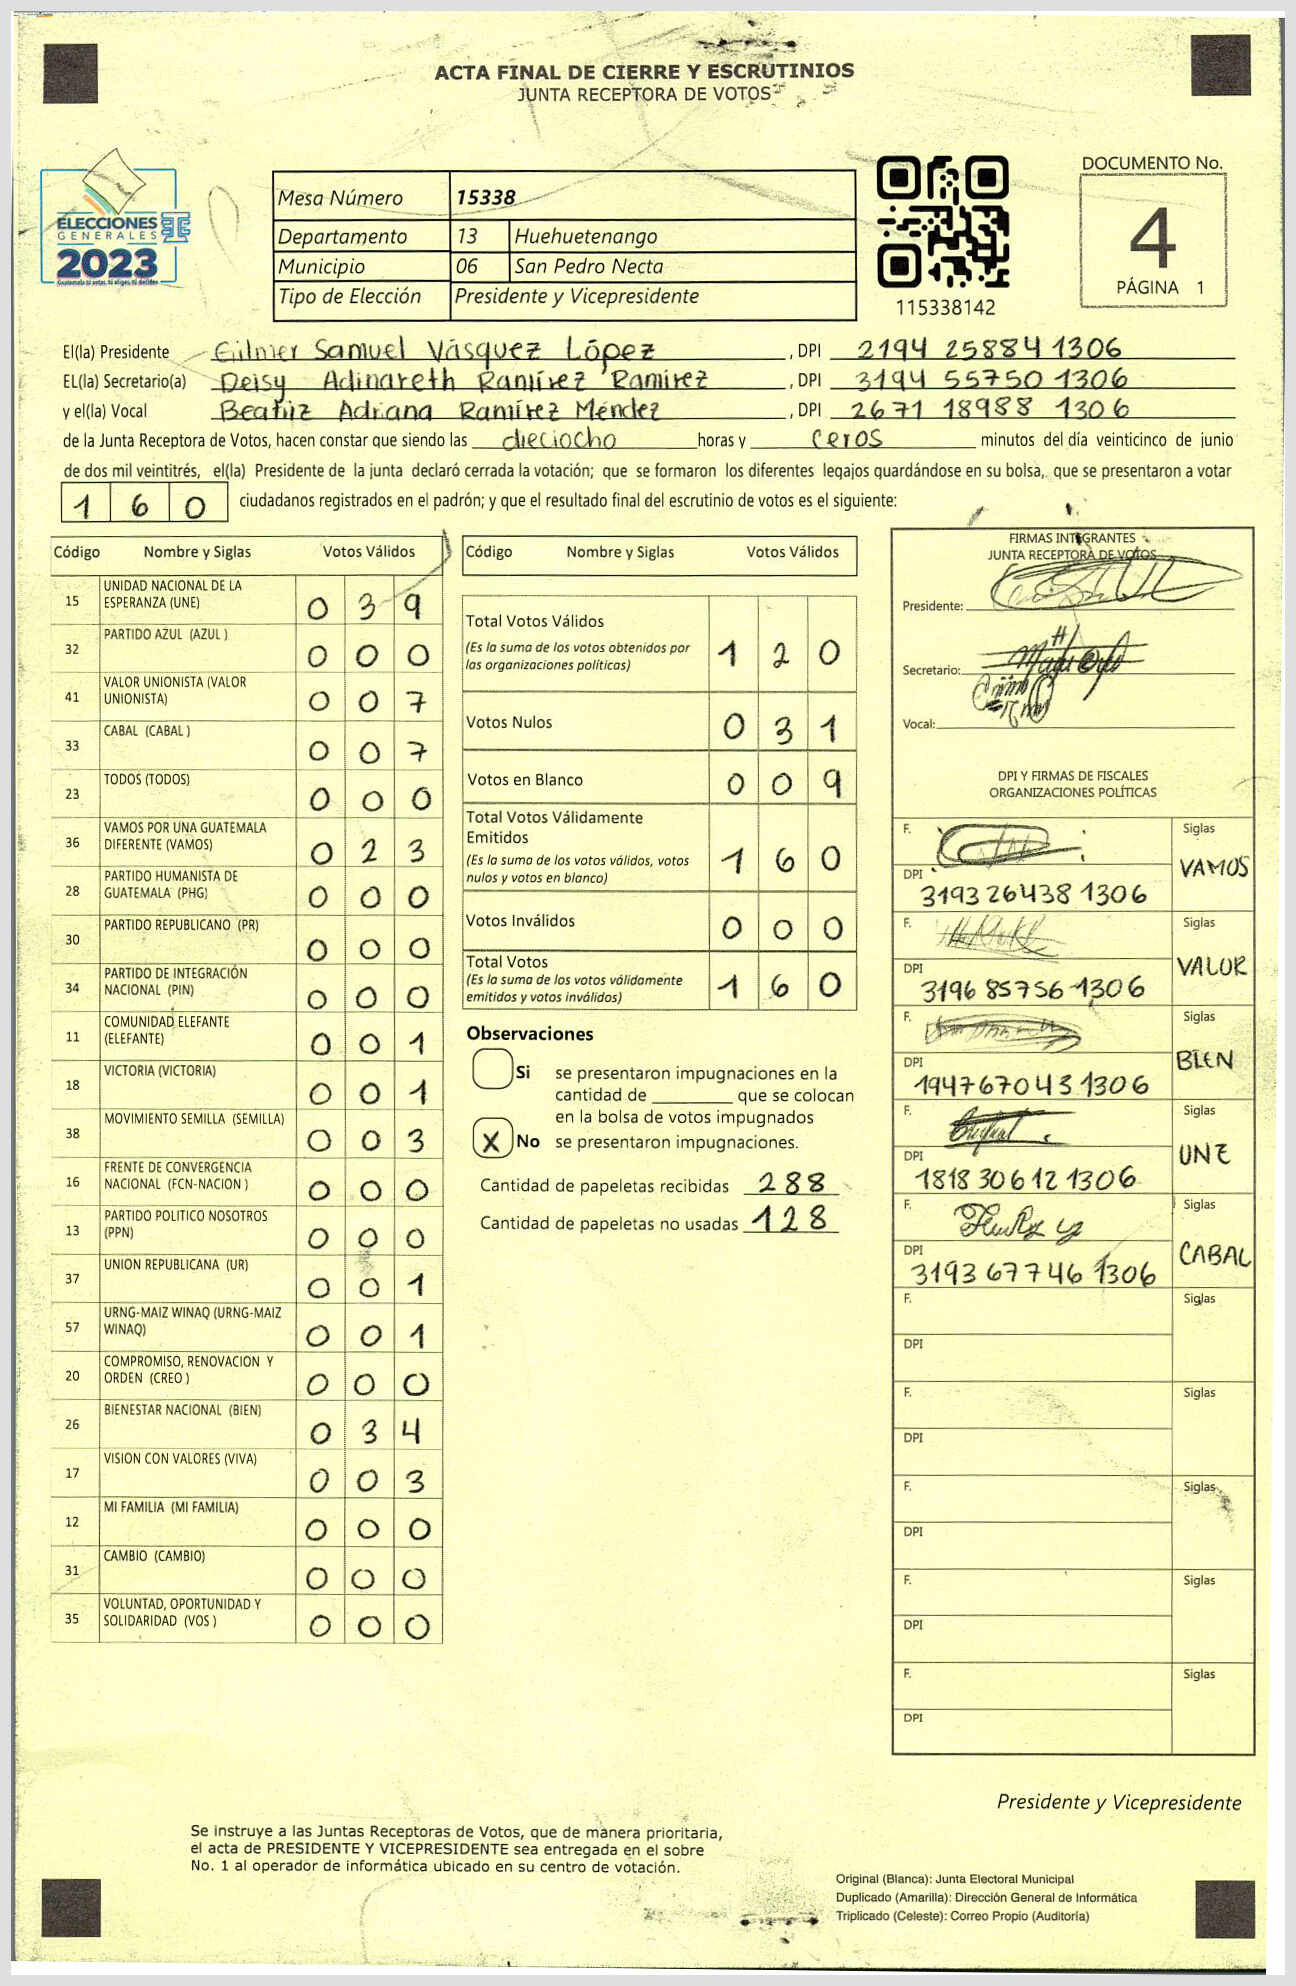 ACTA FINAL DE CIERRE Y ESCRUTINIOS
JUNTA RECEPTORA DE VOTOS
ELECCIONES
GENERALES
2023
Guatemala tú votas, tú eliges, tú decides
Mesa Número 15338
Departamento 13 Huehuetenango
Municipio 06 San Pedro Necta
Tipo de Elección Presidente y Vicepresidente
115338142
DOCUMENTO No.
4
PÁGINA 1
El(la) Presidente Gilmer Samuel Vásquez López , DPI 2194 25884 1306
EL(la) Secretario(a) Deisy Adinareth Ramírez Ramirez , DPI 3194 55750 1306
y el(la) Vocal Beatriz Adriana Ramírez Méndez , DPI 2671 18988 1306
de la Junta Receptora de Votos, hacen constar que siendo las dieciocho horas y ceros minutos del día veinticinco de junio
de dos mil veintitrés, el(la) Presidente de la junta declaró cerrada la votación; que se formaron los diferentes legajos quardándose en su bolsa, que se presentaron a votar
160 ciudadanos registrados en el padrón; y que el resultado final del escrutinio de votos es el siguiente:
Código Nombre y Siglas Votos Válidos
15 UNIDAD NACIONAL DE LA ESPERANZA (UNE) 0 3 9
32 PARTIDO AZUL (AZUL ) 0 0 0
41 VALOR UNIONISTA (VALOR UNIONISTA) 0 0 7
33 CABAL (CABAL ) 0 0 7
23 TODOS (TODOS) 0 0 0
36 VAMOS POR UNA GUATEMALA DIFERENTE (VAMOS) 0 2 3
28 PARTIDO HUMANISTA DE GUATEMALA (PHG) 0 0 0
30 PARTIDO REPUBLICANO (PR) 0 0 0
34 PARTIDO DE INTEGRACIÓN NACIONAL (PIN) 0 0 0
11 COMUNIDAD ELEFANTE (ELEFANTE) 0 0 1
18 VICTORIA (VICTORIA) 0 0 1
38 MOVIMIENTO SEMILLA (SEMILLA) 0 0 3
16 FRENTE DE CONVERGENCIA NACIONAL (FCN-NACION ) 0 0 0
13 PARTIDO POLITICO NOSOTROS (PPN) 0 0 0
37 UNION REPUBLICANA (UR) 0 0 1
57 URNG-MAIZ WINAQ (URNG-MAIZ WINAQ) 0 0 1
20 COMPROMISO, RENOVACION Y ORDEN (CREO ) 0 0 0
26 BIENESTAR NACIONAL (BIEN) 0 3 4
17 VISION CON VALORES (VIVA) 0 0 3
12 MI FAMILIA (MI FAMILIA) 0 0 0
31 CAMBIO (CAMBIO) 0 0 0
35 VOLUNTAD, OPORTUNIDAD Y SOLIDARIDAD (VOS ) 0 0 0
Código Nombre y Siglas Votos Válidos
Total Votos Válidos 1 2 0
(Es la suma de los votos obtenidos por
las organizaciones políticas)
Votos Nulos 0 3 1
Votos en Blanco 0 0 9
Total Votos Válidamente
Emitidos 1 6 0
(Es la suma de los votos válidos, votos
nulos y votos en blanco)
Votos Inválidos 0 0 0
Total Votos 1 6 0
(Es la suma de los votos válidamente
emitidos y votos inválidos)
Observaciones
Si se presentaron impugnaciones en la
cantidad de ________ que se colocan
en la bolsa de votos impugnados
X No se presentaron impugnaciones.
Cantidad de papeletas recibidas 288
Cantidad de papeletas no usadas 128
FIRMAS INTEGRANTES
JUNTA RECEPTORA DE VOTOS
Presidente:
Secretario:
Vocal:
DPI Y FIRMAS DE FISCALES
ORGANIZACIONES POLÍTICAS
F. Siglas
VAMOS
DPI 3193 26438 1306
F. Siglas
VALOR
DPI 3196 85756 1306
F. Siglas
BIEN
DPI 194767043 1306
F. Siglas
UNE
DPI 1818 30612 1306
F. Siglas
CABAL
DPI 3193 67746 1306
F. Siglas
DPI
F. Siglas
DPI
F. Siglas
DPI
F. Siglas
DPI
F. Siglas
DPI
Presidente y Vicepresidente
Se instruye a las Juntas Receptoras de Votos, que de manera prioritaria,
el acta de PRESIDENTE Y VICEPRESIDENTE sea entregada en el sobre
No. 1 al operador de informática ubicado en su centro de votación.
Original (Blanca): Junta Electoral Municipal
Duplicado (Amarilla): Dirección General de Informática
Triplicado (Celeste): Correo Propio (Auditoría)